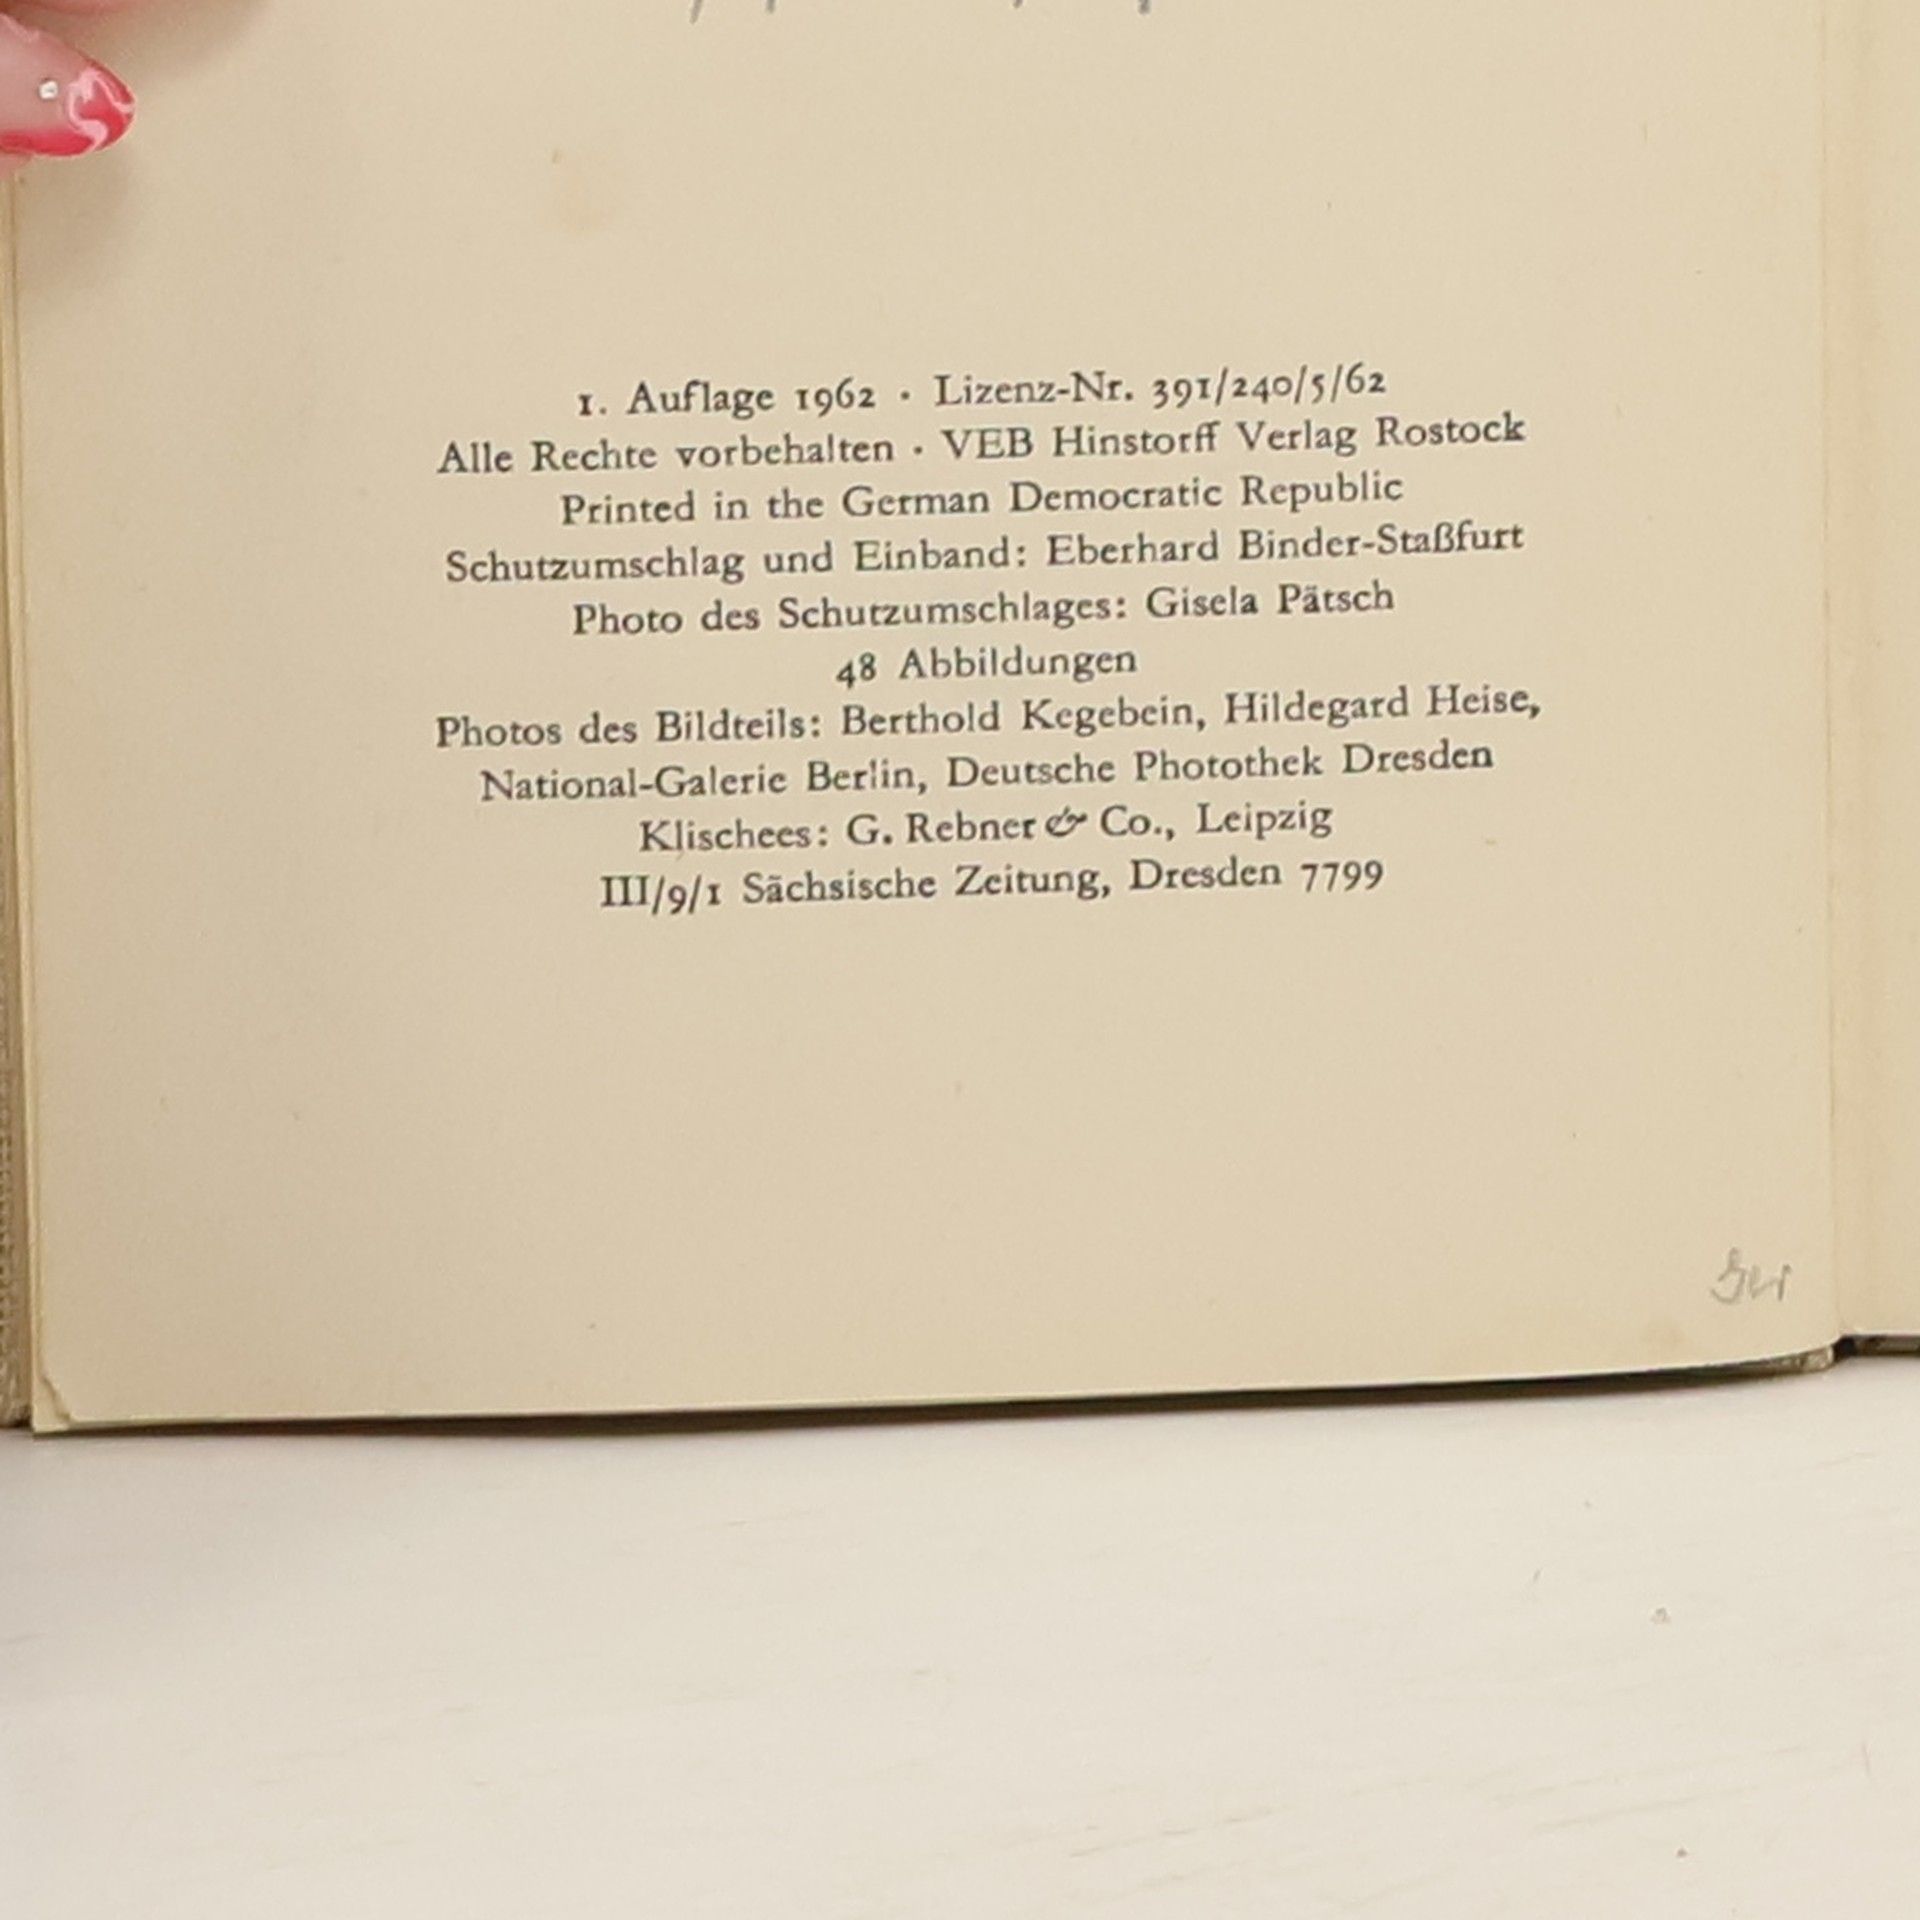 1. Auflage 1962 · Lizenz-Nr. 391/240/5/62
Alle Rechte vorbehalten · VEB Hinstorff Verlag Rostock
Printed in the German Democratic Republic
Schutzumschlag und Einband: Eberhard Binder-Staßfurt
Photo des Schutzumschlages: Gisela Pätsch
48 Abbildungen
Photos des Bildteils: Berthold Kegebein, Hildegard Heise,
National-Galerie Berlin, Deutsche Photothek Dresden
Klischees: G. Rebner & Co., Leipzig
III/9/1 Sächsische Zeitung, Dresden 7799